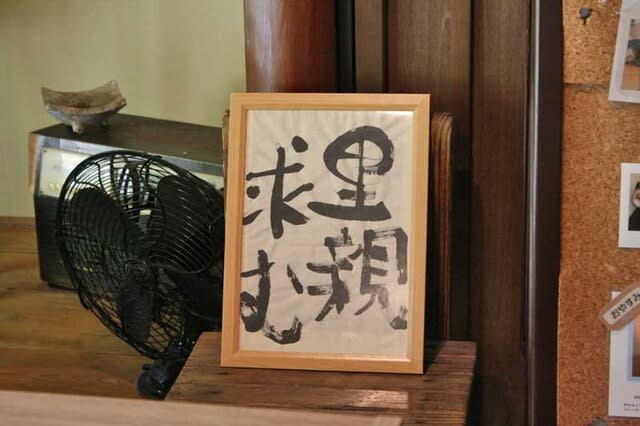 里親
求む
おやすみ